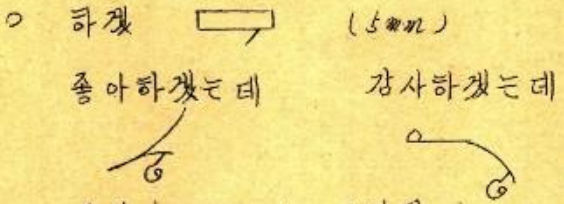 ○ 하겠 (5mm)
좋아하겠는데 감사하겠는데